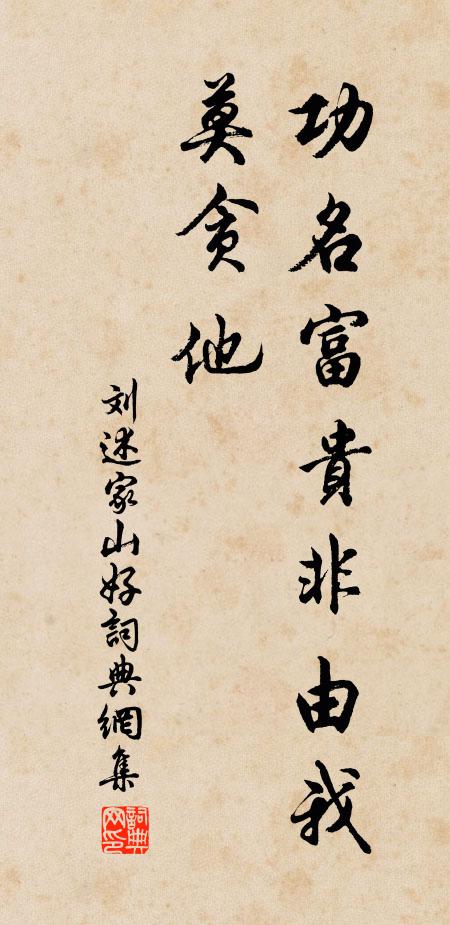 功名富貴非由我
莫贪他
刘述家山好詞典網集
詞典网印